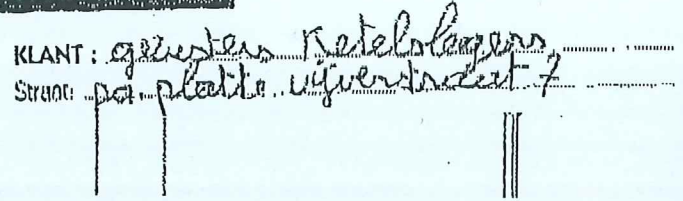 KLANT : geusters Ketelslegers
Straat: pa. platte vijverstraat 7